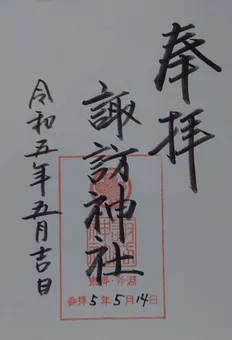 奉拝
諏訪神社
令和五年五月吉日
参拝 5年5月14日